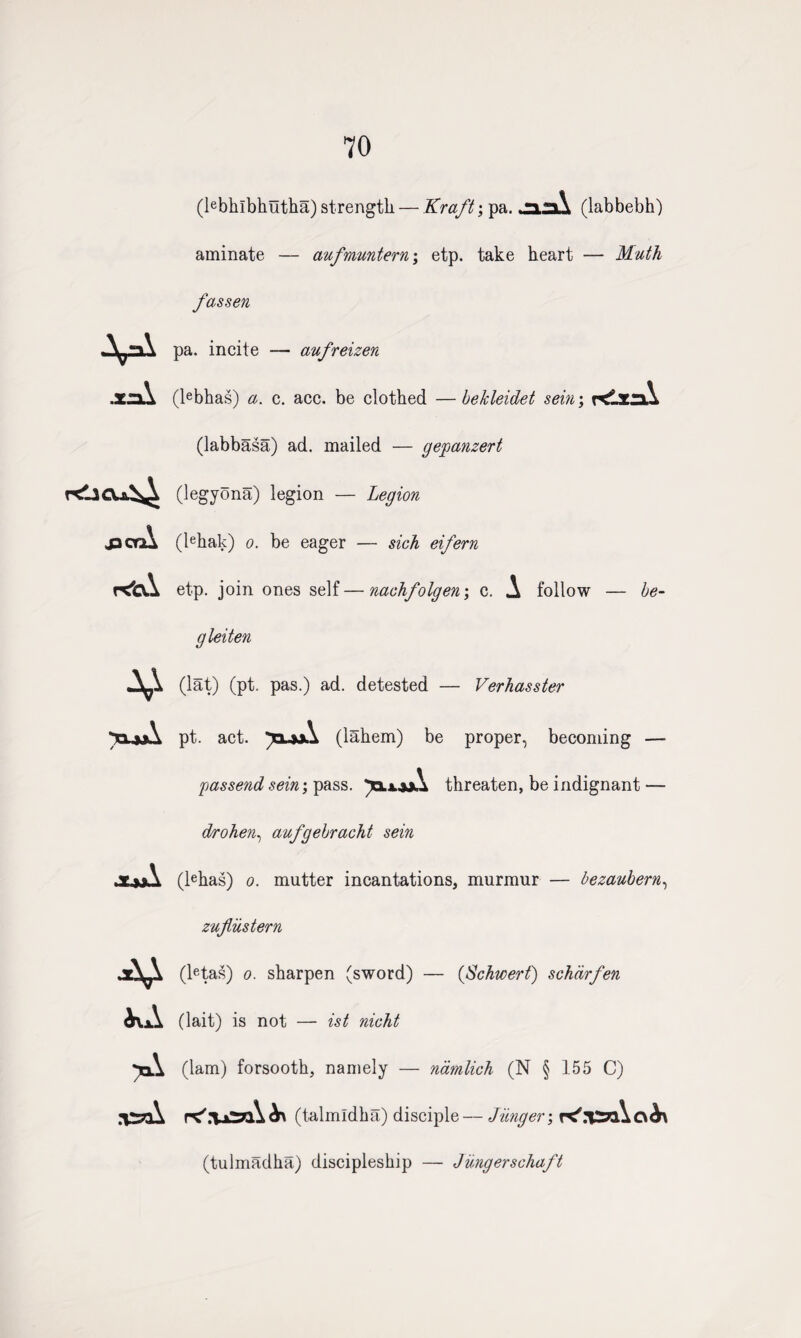 70
(lᵉbhībhūthā) strength — Kraft; pa. ܠܒܒ (labbebh)
aminate — aufmuntern; etp. take heart — Muth
fassen
ܠܒܛ pa. incite — aufreizen
ܠܒܫ (lᵉbhaš) a. c. acc. be clothed — bekleidet sein; ܠܒܫܐ
(labbāšā) ad. mailed — gepanzert
ܠܓܝܘܢܐ (legyōnā) legion — Legion
ܠܗܩ (lᵉhaḳ) o. be eager — sich eifern
ܠܘܐ etp. join ones self — nachfolgen; c. ܠ follow — be-
gleiten
ܠܛ (lāṭ) (pt. pas.) ad. detested — Verhasster
ܠܚܡ pt. act. ܠܚܡ (lāḥem) be proper, becoming —
passend sein; pass. ܠܚܝܡ threaten, be indignant —
drohen, aufgebracht sein
ܠܚܫ (lᵉḥaš) o. mutter incantations, murmur — bezaubern,
zuflüstern
ܠܛܫ (lᵉṭaš) o. sharpen (sword) — (Schwert) schärfen
ܠܝܬ (lait) is not — ist nicht
ܠܡ (lam) forsooth, namely — nämlich (N § 155 C)
ܠܡܕ ܬܠܡܝܕܐ (talmīdhā) disciple — Jünger; ܬܘܠܡܕܐ
(tulmādhā) discipleship — Jüngerschaft